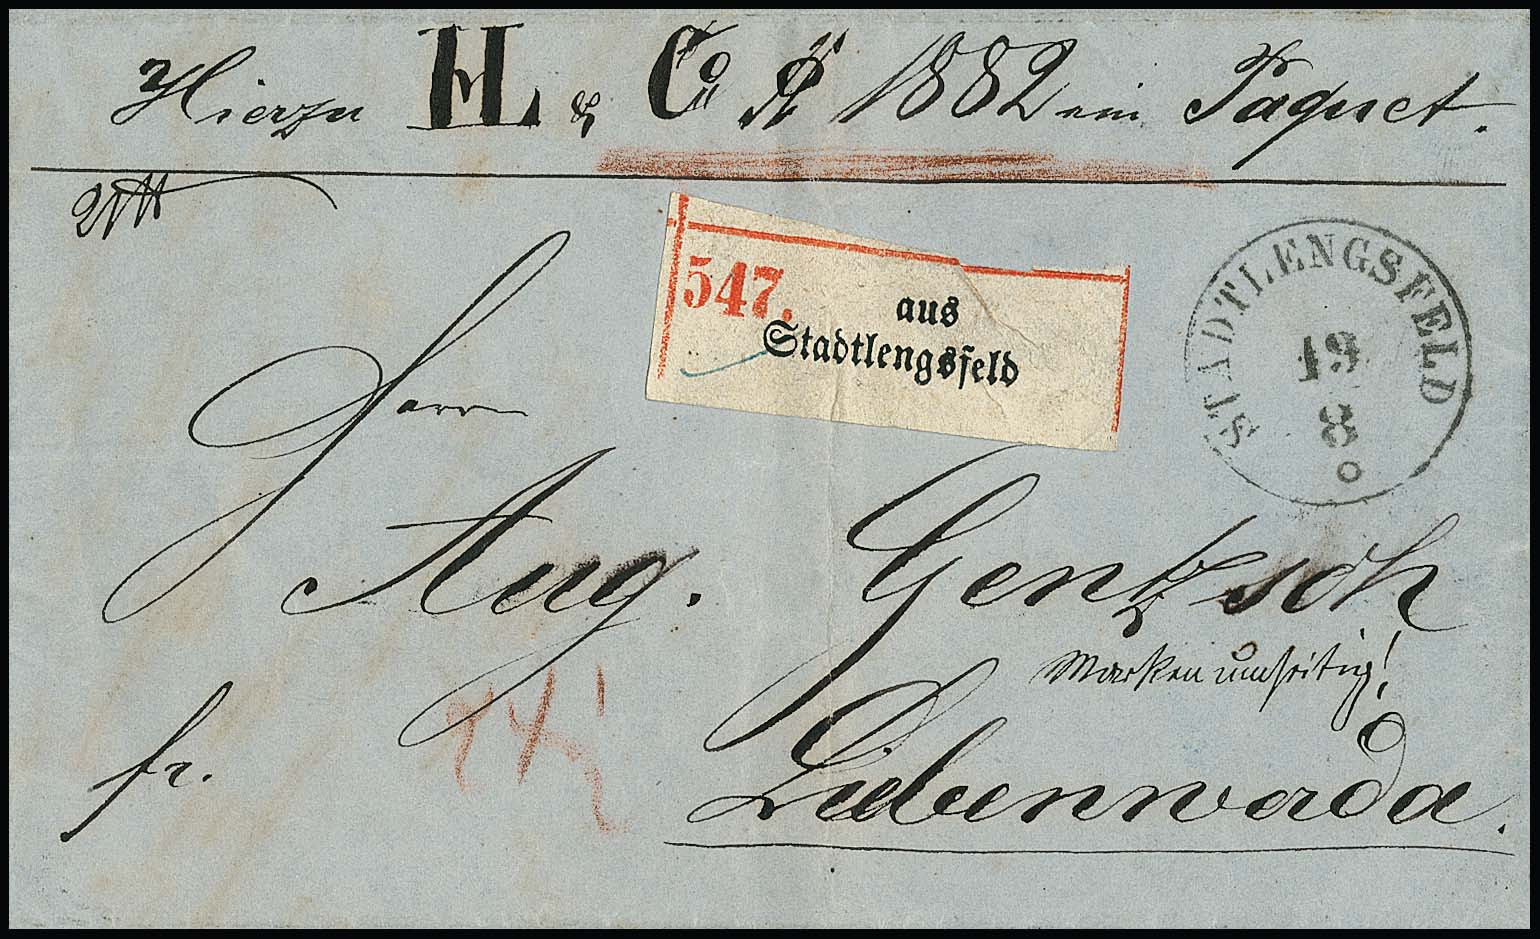 Hierzu H. & Co # 1882 ein Paquet.
547.
aus
Stadtlengsfeld
STADTLENGSFELD
19
8
Herrn
Aug. Gentzsch
Marken umseitig!
Liebenwerda.
fr.